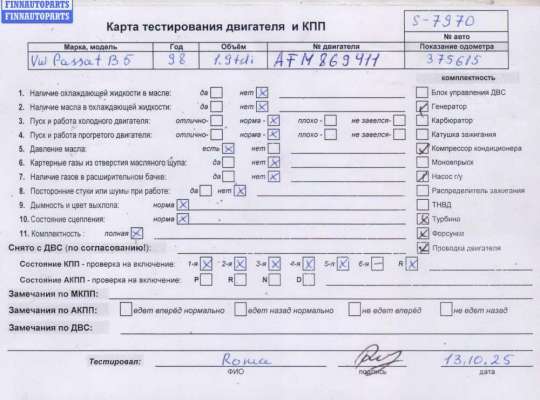 FINNAUTOPARTS
FINNAUTOPARTS
Карта тестирования двигателя и КПП
S-7970
№ авто
Марка, модель Год Объём № двигателя Показание одометра
VW Passat B5 98 1.9tdi AFM869411 375615
комплектность
1. Наличие охлаждающей жидкости в масле: да нет X Блок управления ДВС
2. Наличие масла в охлаждающей жидкости: да нет X Генератор
3. Пуск и работа холодного двигателя: отлично- норма - X плохо - не завелся- Карбюратор
4. Пуск и работа прогретого двигателя: отлично- норма - X плохо - не завелся- Катушка зажигания
5. Давление масла: есть X нет Компрессор кондиционера
6. Картерные газы из отверстия масляного щупа: да нет X Моновпрыск
7. Наличие газов в расширительном бачке: да нет X Насос г/у
8. Посторонние стуки или шумы при работе: да нет X Распределитель зажигания
9. Дымность и цвет выхлопа: норма X ТНВД
10. Состояние сцепления: норма X Турбина
11. Комплектность : полная X Форсунки
Снято с ДВС (по согласованию!): Проводка двигателя
Состояние КПП - проверка на включение: 1-я X 2-я X 3-я X 4-я X 5-я X 6-я – R X
Состояние АКПП - проверка на включение: P R N D
Замечания по МКПП:
Замечания по АКПП: едет вперёд нормально едет назад нормально не едет вперёд не едет назад
Замечания по ДВС:
Тестировал: Roma 13.10.25
ФИО подпись дата